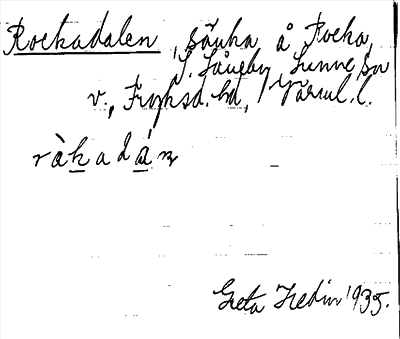 Rockadalen, sänka å Rocka,
S. Låneby, Sunne sn
v., Fryksd. hd, Värml. l.
ràkadán
Greta Hedin 1935.